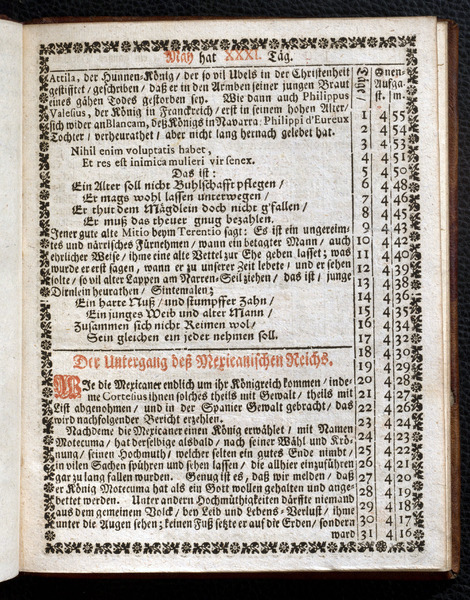 May hat XXXI. Täg.
Attila, der Hunnen-König / der so vil Ubels in der Christenheit
gestifftet / geschriben / daß er in den Armben seiner jungen Braut
eines gähen Todes gestorben sey. Wie dann auch Philippus
Valesius, der König in Franckreich / erst in seinem hohen Alter /
sich wider an Blancam, deß Königs in Nabarra: Philippi d'Eureux
Tochter / verheurathet / aber nicht lang hernach gelebet hat.
Nihil enim voluptatis habet,
Et res est inimica mulieri vir senex.
Das ist:
Ein Alter soll nicht Buhlschafft pflegen /
Er mags wohl lassen unterwegen /
Er thut dem Mägdlein doch nicht g'fallen /
Er muß das theuer gnug bezahlen.
Jener gute alte Mitio beym Terentio sagt: Es ist ein ungereim-
tes und närrisches Fürnehmen / wann ein betagter Mann / auch
ehrlicher Weise / ihme eine alte Vettel zur Ehe geben lasset; was
wurde er erst sagen / wann er zu unserer Zeit lebete / und er sehen
solte / so vil alter Lappen am Narren-Seil ziehen / das ist / junge
Dirnlein heurathen / Sintemalen;
Ein harte Nuß / und stumpffer Zahn /
Ein junges Weib und alter Mann /
Zusammen sich nicht Reimen wol /
Sein gleichen ein jeder nehmen soll.
Der Untergang deß Mexicanischen Reichs.
WIe die Mexicaner endlich um ihr Königreich kommen / inde-
me Cortesius ihnen solches theils mit Gewalt / theils mit
List abgenohmen / und in der Spanier Gewalt gebracht / das
wird nachfolgender Bericht erzehlen.
Nachdeme die Mexicaner einen König erwählet / mit Namen
Motecuma, hat derselbige alsbald / nach seiner Wahl und Krö-
nung / seinen Hochmuth / welcher selten ein gutes Ende nimbt /
in vilen Sachen spühren und sehen lassen / die allhier einzuführen
gar zu lang fallen wurden. Genug ist es / daß wir melden / daß
er König Motecuma hat als ein Gott wollen gehalten und ange-
bettet werden. Unter andern Hochmüthigkeiten därffte niemand
aus dem gemeinem Volck / bey Leib und Lebens-Verlust / ihme
unter die Augen sehen; keinen Fuß setzte er auf die Erden / sondern
ward
Täge /
Sonen-
Aufga.
st. m.
1 4 55
2 4 54
3 4 53
4 4 51
5 4 50
6 4 48
7 4 46
8 4 45
9 4 43
10 4 42
11 4 40
12 4 39
13 4 38
14 4 36
15 4 35
16 4 34
17 4 32
18 4 30
19 4 29
20 4 28
21 4 27
22 4 26
23 4 24
24 4 23
25 4 22
26 4 21
27 4 20
28 4 19
29 4 18
30 4 17
31 4 16